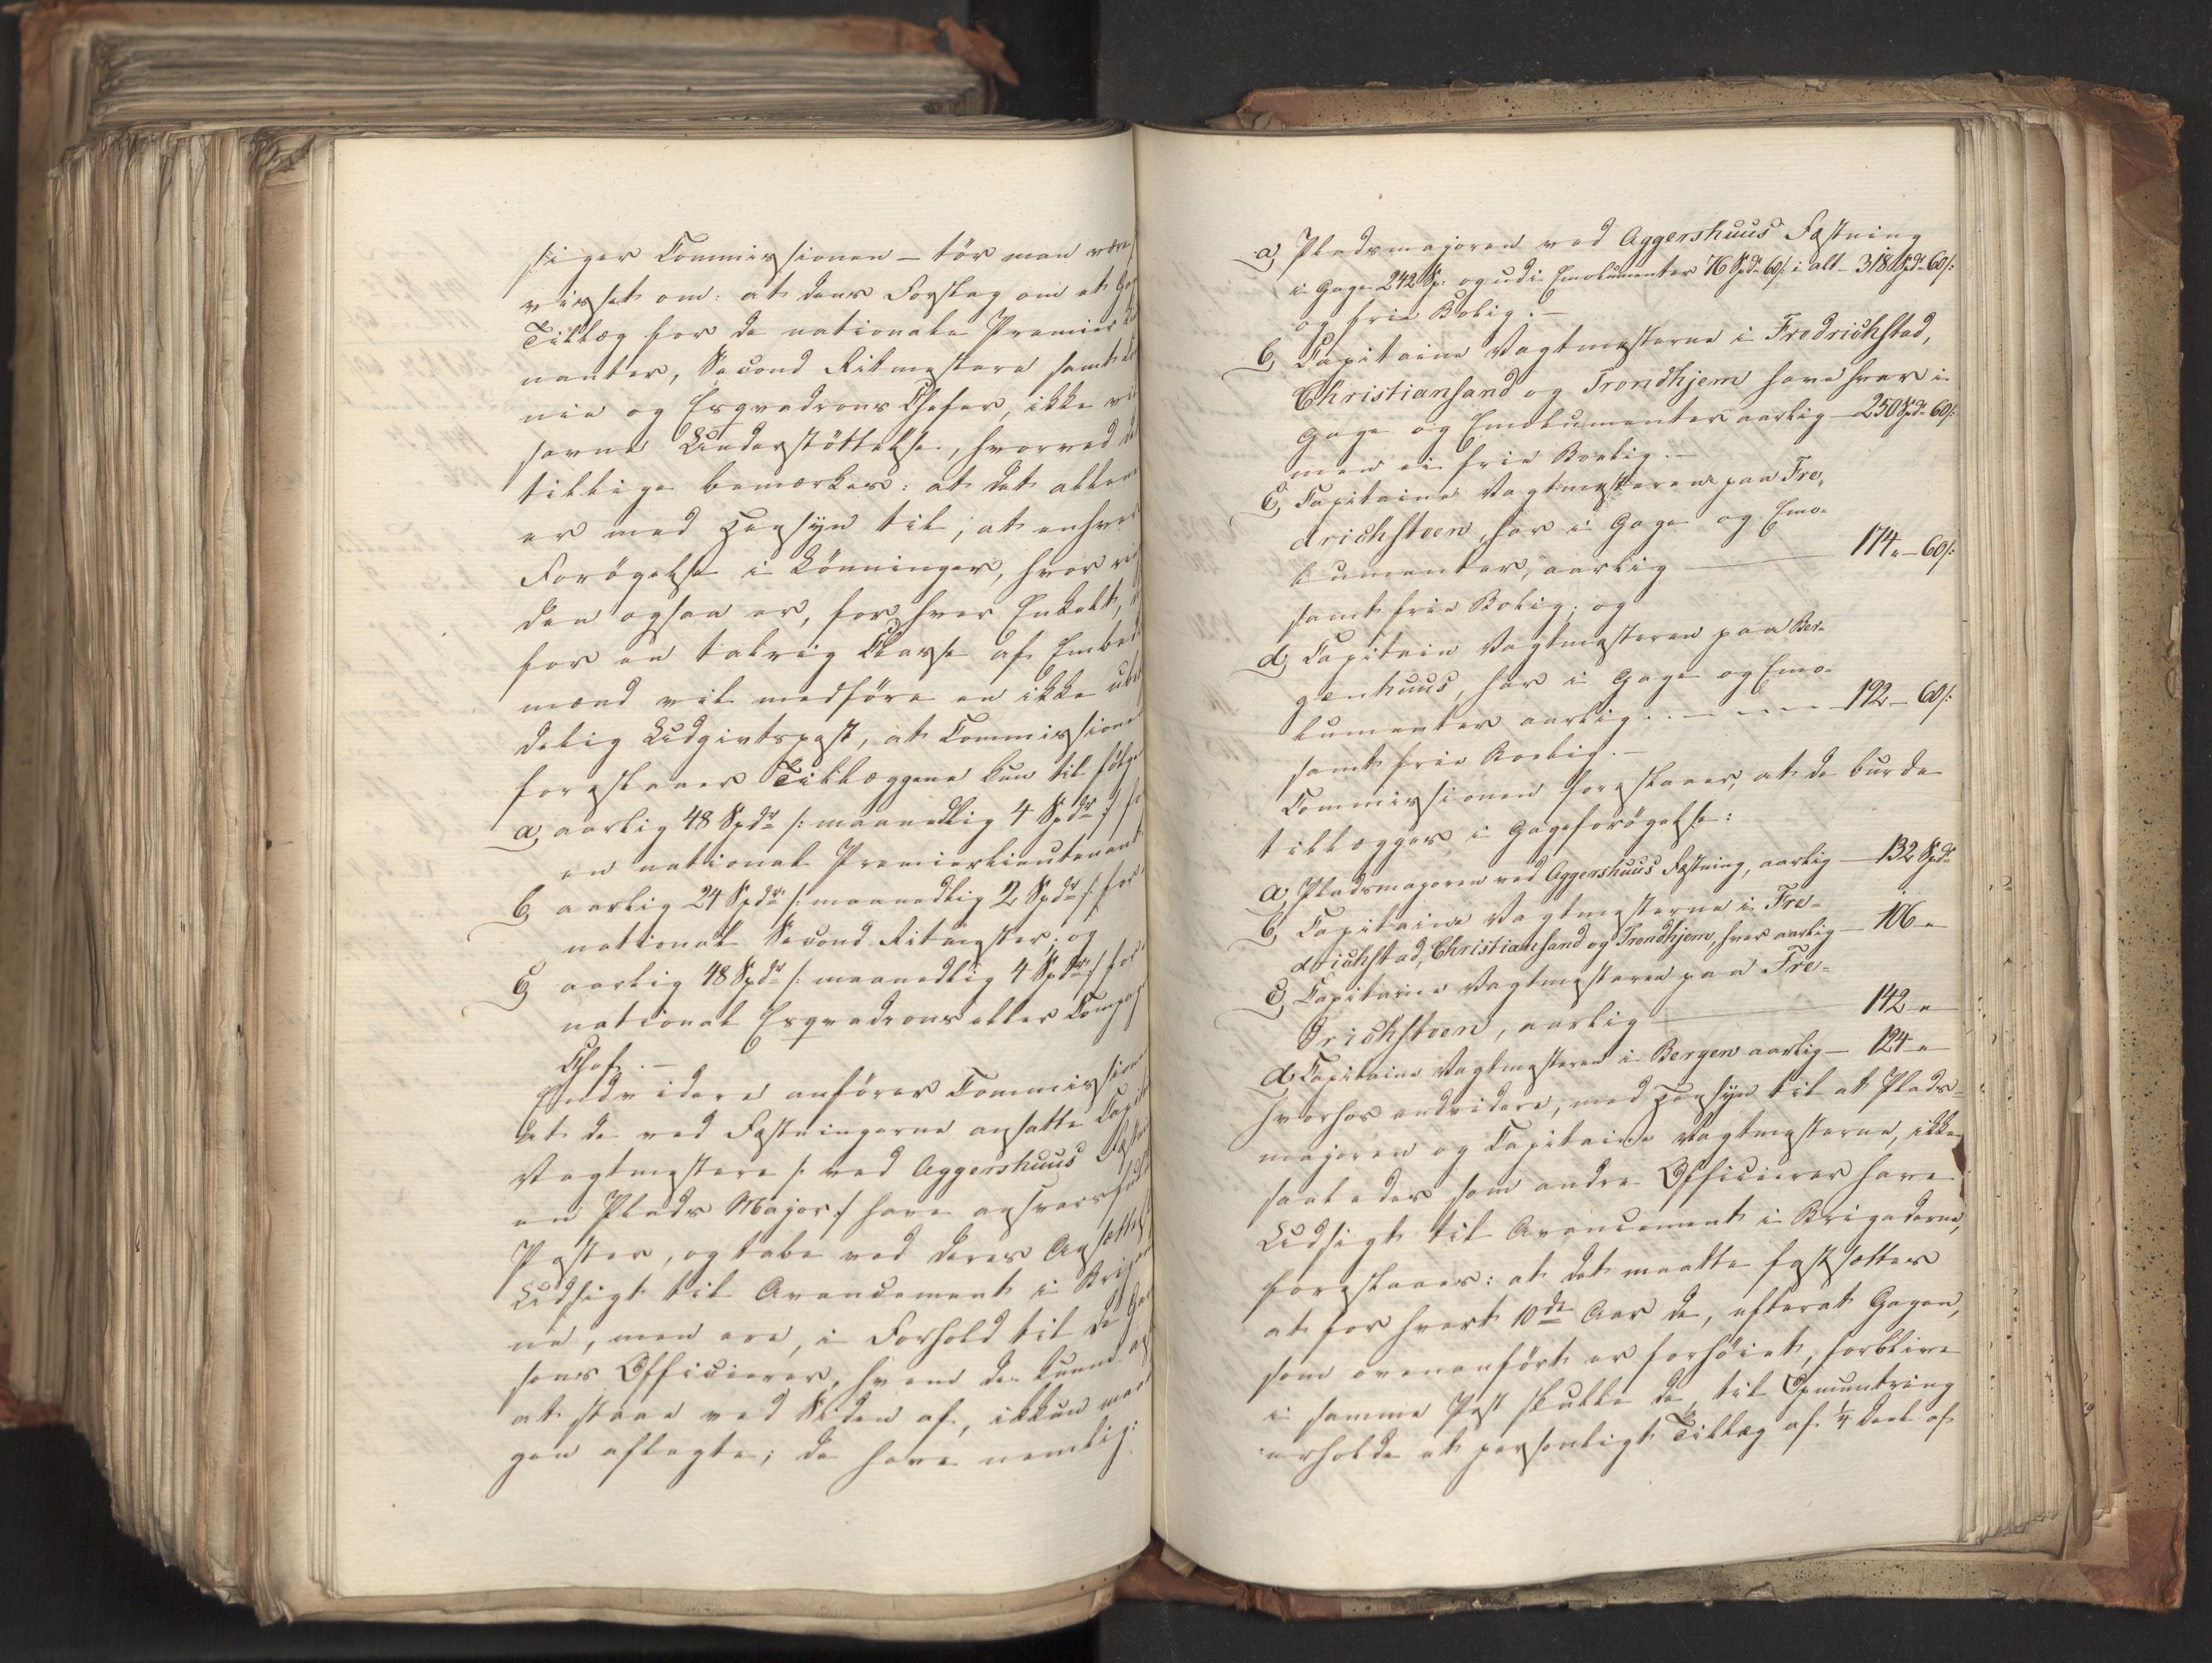 siger Commissionen – tör man være
visset om: at dens Forslag om et Gage
Tillæg for de nationale Premier Lieu
nanter, Second Ritmestere samt Com
nie og Esqvadrons Chefer, ikke vil
savne Understöttelse, hvorved det
tillige bemærkes: at det allene
er med Hensyn til, at enhver
Forögelse i Lönninger, hvor ri
den ogsaa er, for hver Enkelt,
for en talrig Classe af Embeds
mænd vil medföre en ikke ube
delig Udgivtspost, at Commissionen
foreslaaer Tillæggene kun til fölge
a, aarlig 48 Spdr /: maanedlig 4 Spdr :/ for
en national Premierlieutenant
b, aarlig 24 Spdr /: maanedlig 2 Spdr :/ for
national Second Ritmester; og
c, aarlig 48 Spdr /: maanedlig 4 Spdr :/ for
national Esqvadrons eller Compag
Chef. –
Endvidere anförer Commissionen
at de ved Fæstningerne ansatte Capit
Vagtmestere /: ved Aggershuus Fæstni
en Plads Major :/ have ansvarsfulde
Poster, og tabe ved deres Ansættelse
Udsigt til Avancement i Briga
ne, men ere, i Forhold til de Gar
sons Officierer, hvem de kunne an
at staae ved Siden af, ikkun ma
gen aflagte; de have nemlig:
a, Pladsmajoren ved Aggershuus Fæstning
i Gage 242 Sp: og udi Emolumenter 76 Spdr 60 /: i alt – 318 Spdr 60 /:
og frie Bolig. –
b, Capitaine Vagtmesterne i Fredrichstad,
Christiansand og Trondhjem have hver i
Gage og Emolumenter aarlig – 250 Spdr 60 /:
men ei frie Boelig. –
c, Capitaine Vagtmesteren paa Fre„
drichsteen, har i Gage og Emo=
lumenter, aarlig – 174 „ – 60 /:
samt frie Bolig; og
d, Capitain Vagtmesteren paa Ber=
genhuus, har i Gage og Emo=
lumenter aarlig . . – – – – 192 – 60 /:
samt frie Boelig. –
Commissionen foreslaaer, at de burde
tillægges i Gageforögelse:
a, Pladsmajoren ved Aggershuus Fæstning, aarlig – 132 Spdr
b, Capitaine Vagtmesterne i Fre=
drichstad, Christiansand og Trondhjem, hver aarlig – 106 „
c, Capitaine Vagtmesteren paa Fre=
drichsteen, aarlig – 142 „
d, Capitaine Vagtmesteren i Bergen aarlig – 124 „
hvorhos endvidere, med Hensyn til at Plads=
majoren og Capitaine Vagtmesterne, ikke
saaledes som andre Officierer have
Udsigt til Avancement i Brigaderne,
foreslaaes: at det maatte fastsættes
at for hvert 10de Aar de, efterat Gagen,
som ovenanfört er forhöiet, forblive
i samme Post skulle de, til Opmuntring
erholde et personligt Tillæg af 1/4 Deel af